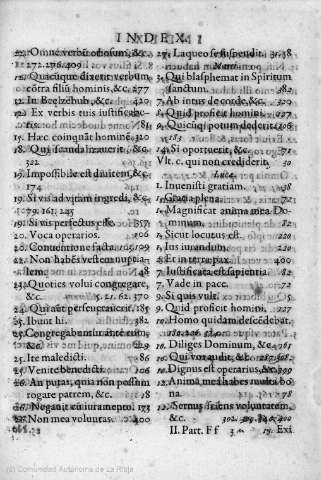 INDEX
12. Omne verbũ otiosum, &c.
272. 276. 409
12. Quicũque dixerit verbum
cõtra filiũ hominis, &c. 277
12. In Beelzebub, &c. 420
12. Ex verbis tuis iustificabe-
ris. 181
15. Hæc coinquãt hominẽ. 320
18. Qui scandalizauerit, &c.
302
19. Impossibile est diuitem, &
174
19. Si vis ad vitam ingredi, &
79. 161. 245
19. Si vis perfectus esse. 357
20. Voca operarios. 206
20. Conuentione facta. 105. 109
22. Non habẽs vestem nuptia-
lem. 48
23. Quoties volui congregare,
&c. 5. 21. 62. 370
24. Qui aũt perseuerauerit. 185
25. Ibunt hi. 382
25. Congregabuntur ante eum,
&c.
25. Ite maledicti. 86
25. Venite benedicti. 206
26. An putas, quia non possum
rogare patrem, &c. 78
26. Negauit cũ iuramento. 173
26. Non mea voluntas. 400
27. Laqueo se suspendit. 31. 38
3. Qui blasphemat in Spiritum
sanctum. 382
7. Ab intus de corde, &c. 320
8. Quid profit homini. 227
9. Quicũq; potum dederit. 206
183
14. Si oportuerit, &c. 71
Vlt. c. qui non crediderit. 30
Lucæ.
1. Inuenisti gratiam. 38
1. Gratia plena. 72
1. Magnificat anima mea Do-
minum. 228
2. Sicut locutus est. 220
1. Ius iurandum. 220
2. Et in terra pax. 400
7. Iustificata est sapientia. 82
7. Vade in pace. 72
9. Si quis vult. 15
9. Quid proficit homini. 227
10. Homo quidam descẽdebat.
10. Diliges Dominum, &c. 261
10. Qui vos audit, &c. 287. 368
10. Dignus est operarius, &c. 309
12. Anima mea habes multa bo
na. 78
12. Seruus sciens voluntatem,
&c. 302. 384. 400
II. Part. Ff 3 19. Exi
(c) Comunidad Autónoma de La Rioja